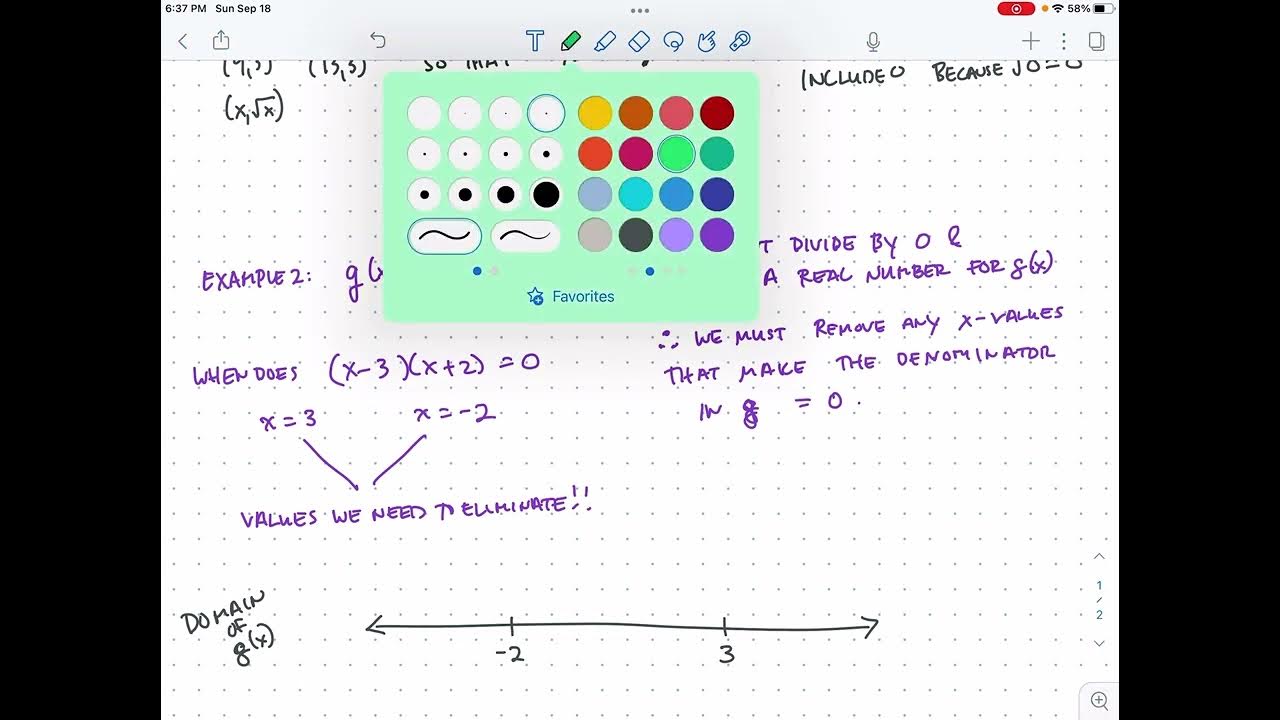 6:37 PM Sun Sep 18
58%
(x,√x)
INCLUDE 0 BECAUSE √0 = 0
Favorites
T DIVIDE BY 0 &
EXAMPLE 2: g(x
A REAL NUMBER FOR g(x)
∴ WE MUST REMOVE ANY X-VALUES
THAT MAKE THE DENOMINATOR
IN g = 0.
WHEN DOES (x-3)(x+2) = 0
x = 3 x = -2
VALUES WE NEED TO ELIMINATE!!
1
2
DOMAIN
OF
g(x)
-2 3